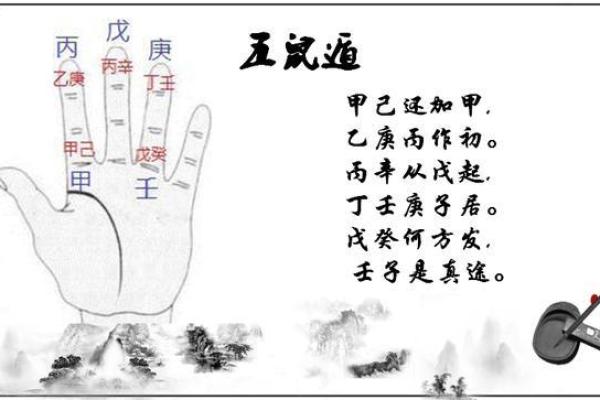 五鼠遁
丙
戊
庚
乙庚
丙辛
丁壬
甲己
戊癸
甲
壬
甲己还加甲，
乙庚丙作初。
丙辛从戊起，
丁壬庚子居。
戊癸何方发，
壬子是真途。